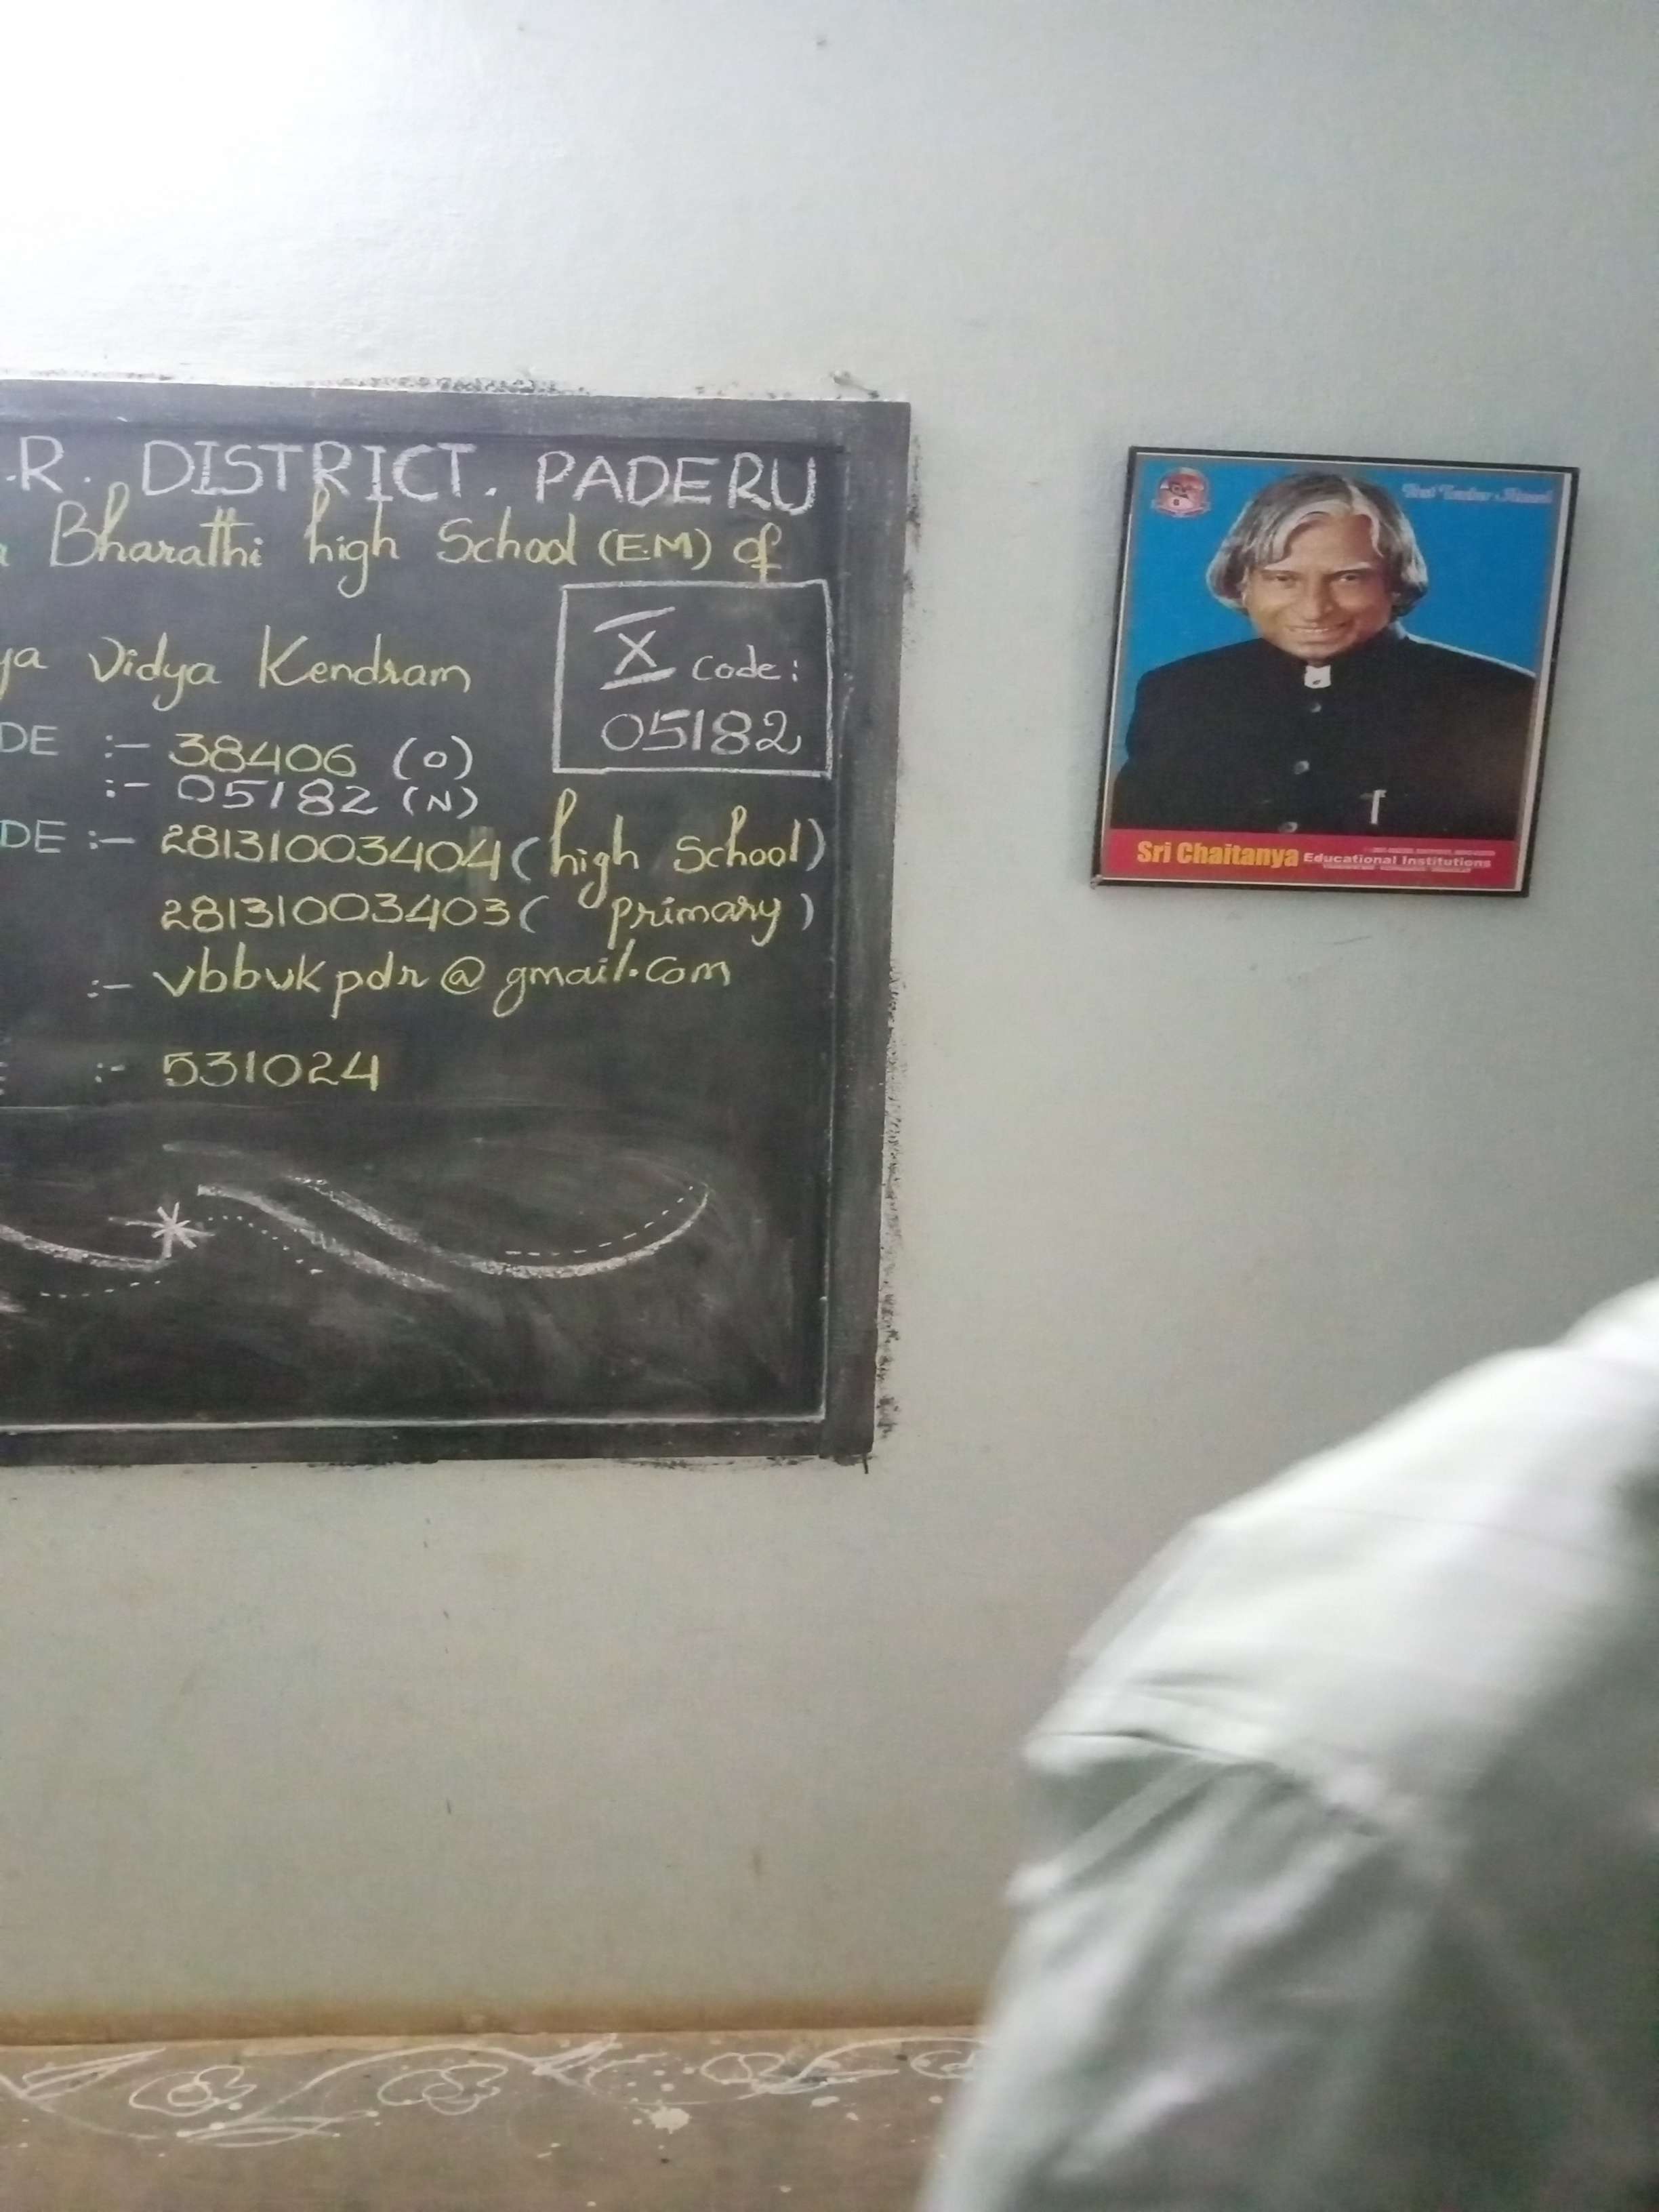 .R. DISTRICT. PADERU
Bharathi high School (E.M) of
ya Vidya Kendram
X Code:
05182
DE :- 38406 (O)
:- 05182 (N)
DE :- 28131003404 (high School)
28131003403 ( Primary )
:- vbbvkpdr@gmail.com
:- 531024
Best Teacher Award
Sri Chaitanya Educational Institutions